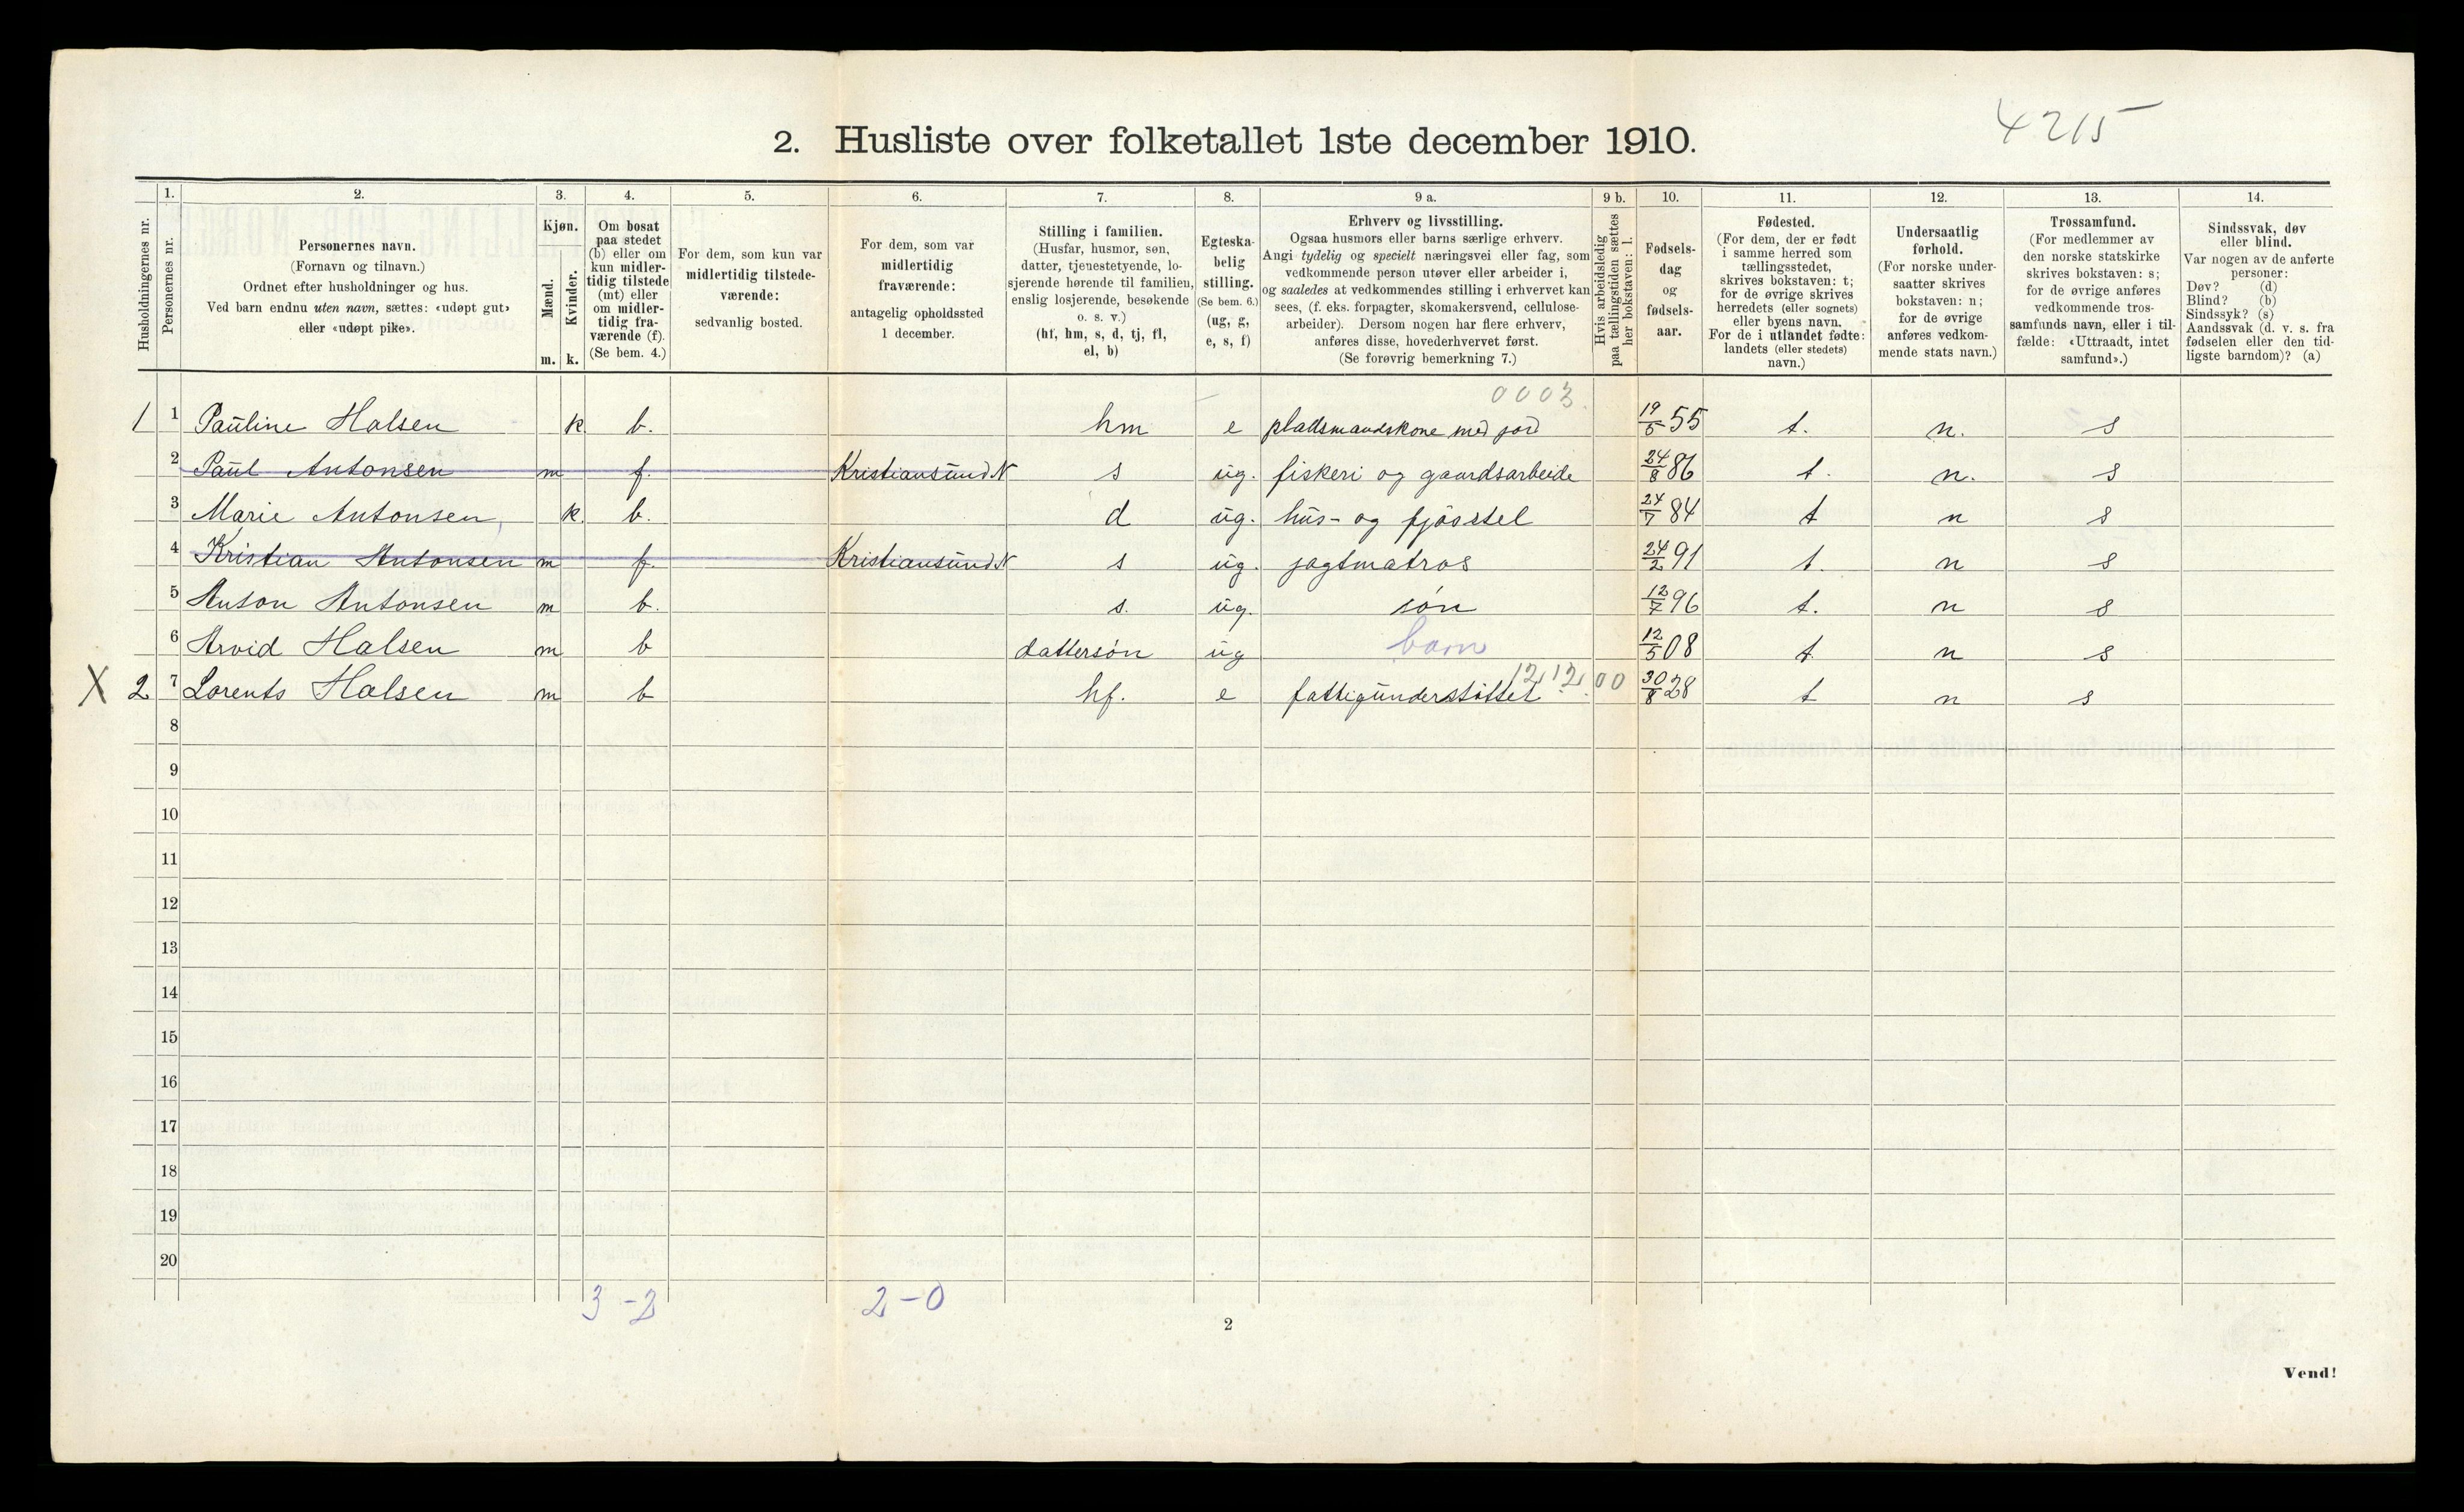 4215
2. Husliste over folketallet 1ste december 1910.
Husholdningernes nr.
1.
Personernes nr.
2.
Personernes navn.
(Fornavn og tilnavn.)
Ordnet efter husholdninger og hus.
Ved barn endnu uten navn, sættes: «udøpt gut»
eller «udøpt pike».
3.
Kjøn.
Mænd.
Kvinder.
m. k.
4.
Om bosat
paa stedet
(b) eller om
kun midler-
tidig tilstede
(mt) eller
om midler-
tidig fra-
værende (f).
(Se bem. 4.)
5.
For dem, som kun var
midlertidig tilstede-
værende:
sedvanlig bosted.
6.
For dem, som var
midlertidig
fraværende:
antagelig opholdssted
1 december.
7.
Stilling i familien.
(Husfar, husmor, søn,
datter, tjenestetyende, lo-
sjerende hørende til familien,
enslig losjerende, besøkende
o. s. v.)
(hf, hm, s, d, tj, fl,
el, b)
8.
Egteska-
belig
stilling.
(Se bem. 6.)
(ug, g,
e, s, f)
9 a.
Erhverv og livsstilling.
Ogsaa husmors eller barns særlige erhverv.
Angi tydelig og specielt næringsvei eller fag, som
vedkommende person utøver eller arbeider i,
og saaledes at vedkommendes stilling i erhvervet kan
sees, (f. eks. forpagter, skomakersvend, cellulose-
arbeider). Dersom nogen har flere erhverv,
anføres disse, hovederhvervet først.
(Se forøvrig bemerkning 7.)
9 b.
Hvis arbeidsledig
paa tællingstiden sættes
her bokstaven: l.
10.
Fødsels-
dag
og
fødsels-
aar.
11.
Fødested.
(For dem, der er født
i samme herred som
tællingsstedet,
skrives bokstaven: t;
for de øvrige skrives
herredets (eller sognets)
eller byens navn.
For de i utlandet fødte:
landets (eller stedets)
navn.)
12.
Undersaatlig
forhold.
(For norske under-
saatter skrives
bokstaven: n;
for de øvrige
anføres vedkom-
mende stats navn.)
13.
Trossamfund.
(For medlemmer av
den norske statskirke
skrives bokstaven: s;
for de øvrige anføres
vedkommende tros-
samfunds navn, eller i til-
fælde: «Uttraadt, intet
samfund».)
14.
Sindssvak, døv
eller blind.
Var nogen av de anførte
personer:
Døv? (d)
Blind? (b)
Sindssyk? (s)
Aandssvak (d. v. s. fra
fødselen eller den tid-
ligste barndom)? (a)
0003.
1 1 Pauline Halsen k. b. hm e pladsmandskone med jord 19/5 55 t. n. s
2 Paul Antonsen m f. Kristiansund N s ug. fiskeri og gaardsarbeide 24/8 86 t. n. s
3 Marie Antonsen, k. b. d ug. hus- og fjøsstel 24/7 84 t n s
4 Kristian Antonsen m f. Kristiansund N s ug. jagtmatros 24/2 91 t. n s
5 Anton Antonsen m b. s. ug. søn 12/7 96 t. n s
6 Arvid Halsen m b dattersøn ug barn 12/5 08 t. n s
12 12 00
X 2 7 Lorents Halsen m b hf. e fattigunderstøttet 30/8 28 t n s
8
9
10
11
12
13
14
15
16
17
18
19
20
3 - 2 2 - 0
2
Vend!